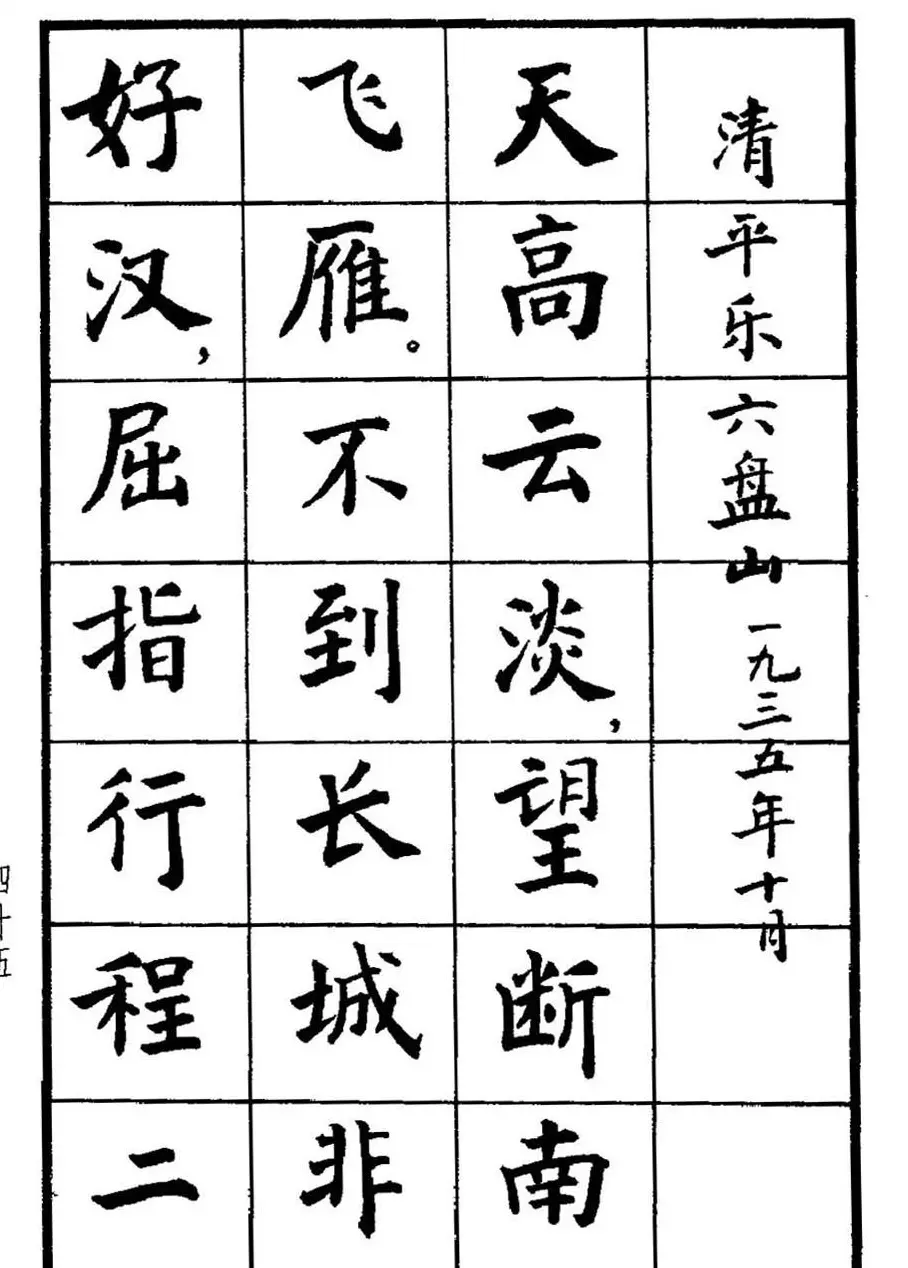 清平乐 六盘山 一九三五年十月
天高云淡，望断南
飞雁。不到长城非
好汉，屈指行程二
四十五